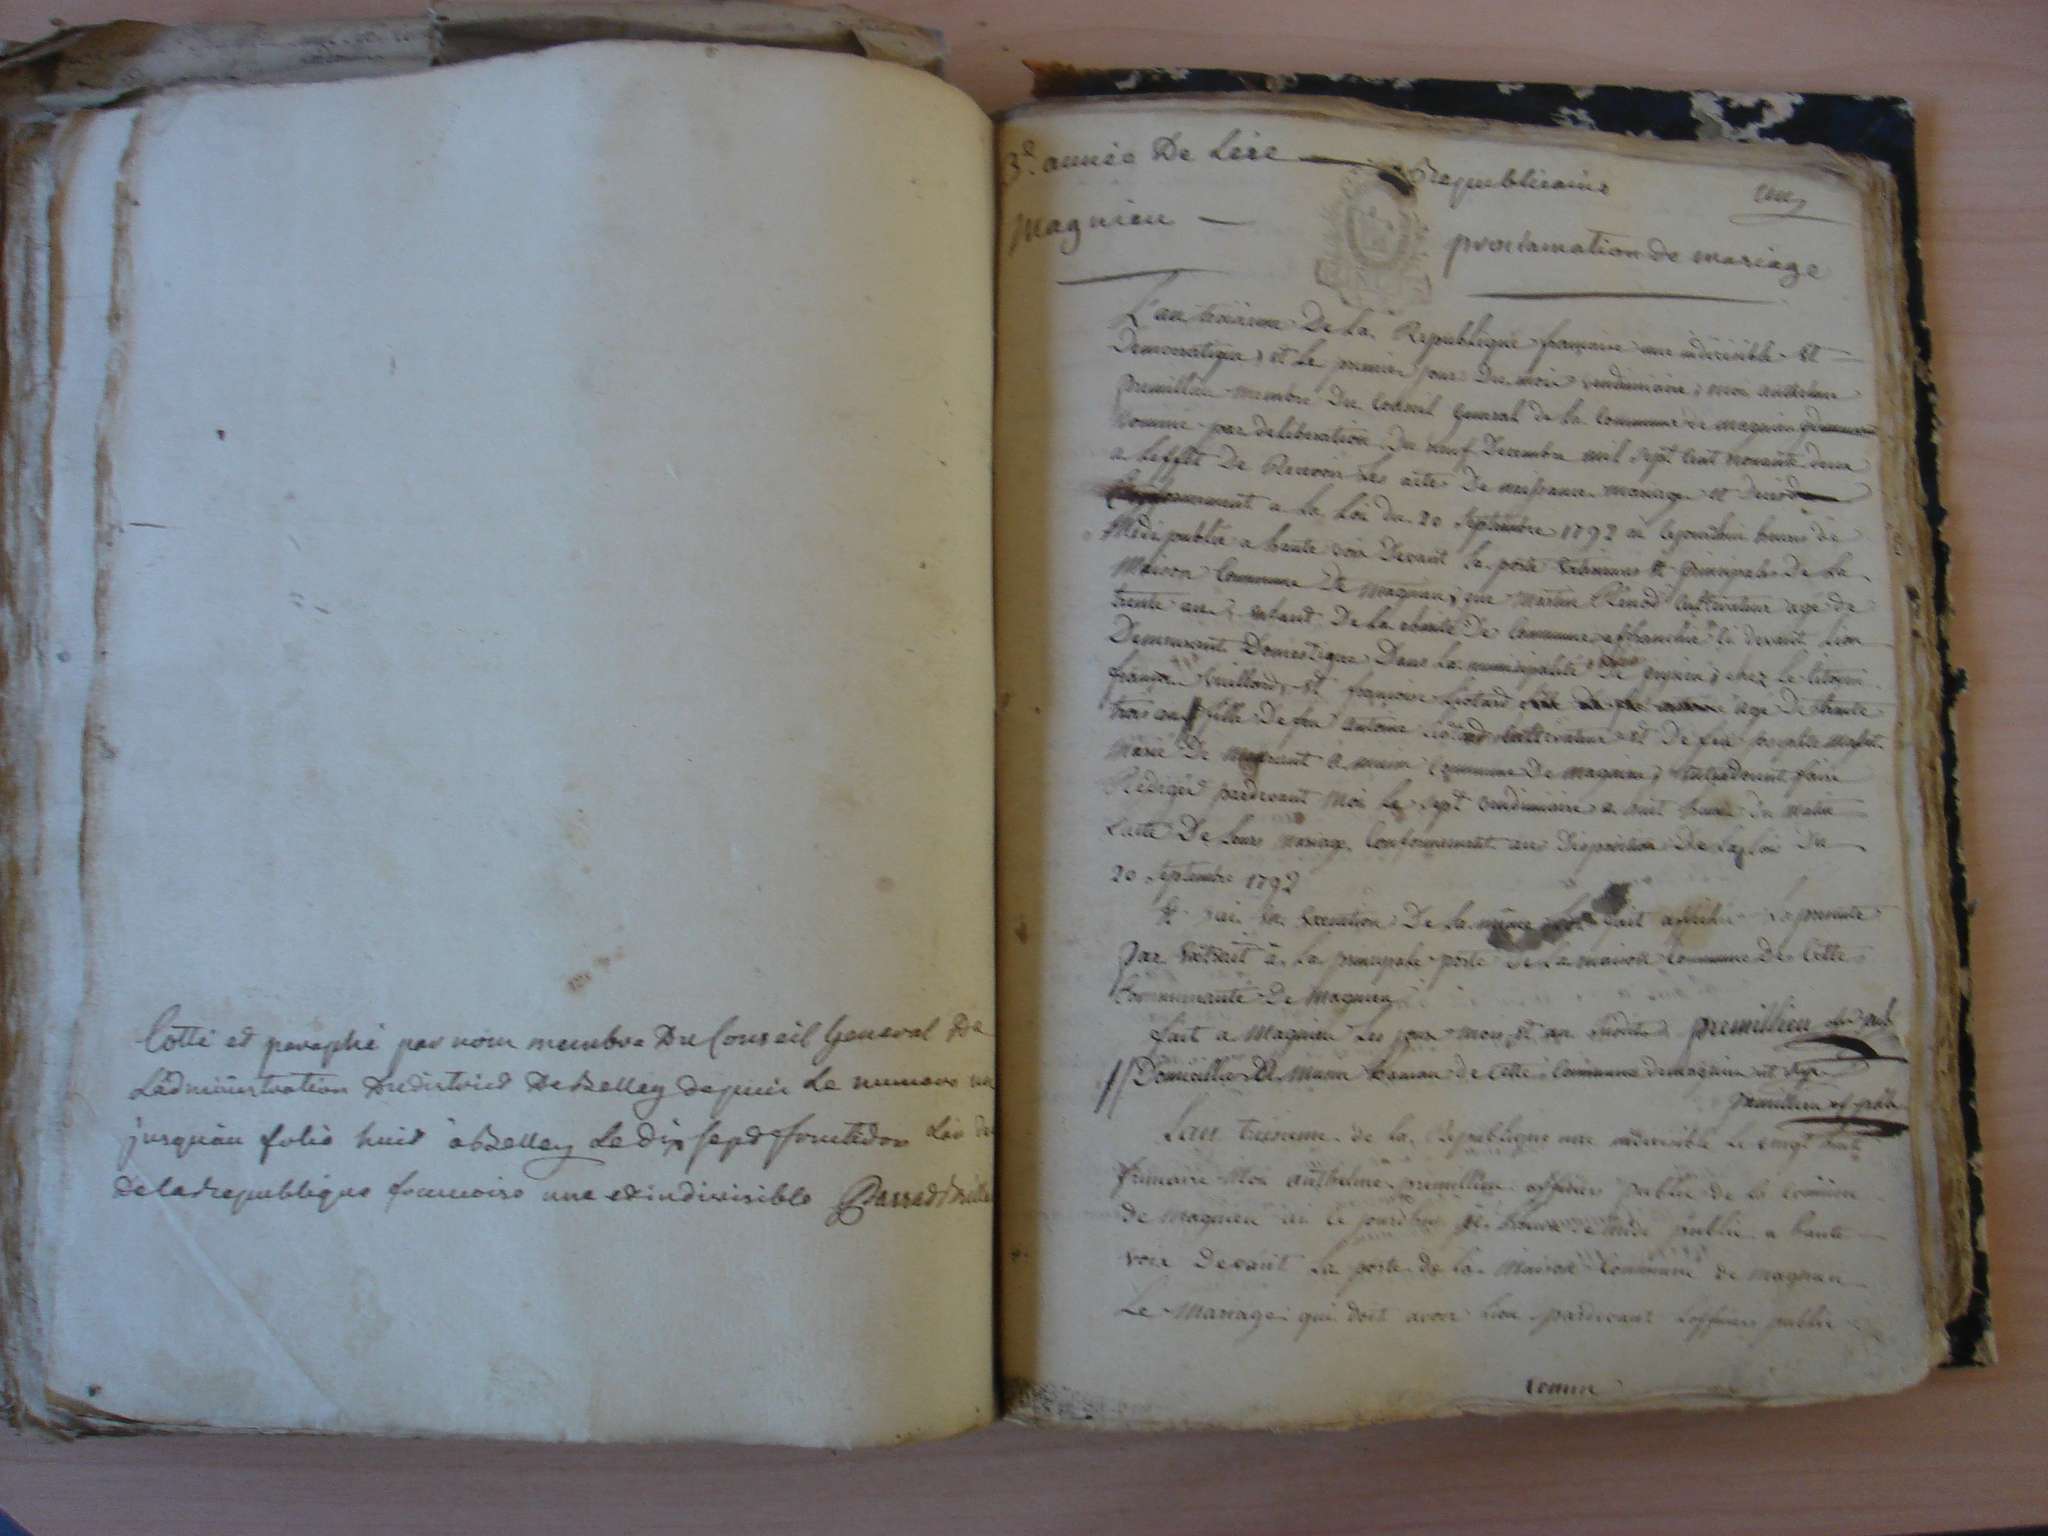 Cotté et paraphé par nous membre Du Conseil General De
L'administration Du district De Belley depuis Le numero un
jusquau folio huit a Belley Le Dix sept fructidor Lan
De la republique francoise une et indivisible
3e. année De Lère Republicaine
Magnieu proclamation de mariage
L'an troisieme De la Republique française une indivisible et
Democratique, et Le premier jour Du mois vendimiaire, moi anthelme
premillieu membre Du Conseil General de la Commune de magnieu
nommé par deliberation Du neuf Decembre mil sept Cent nonante deux
a Leffet De Recevoir Les actes De naissance mariage et Deces
Conformement a La Loi du 20 Septembre 1792 ai cejourdhui heure de
Midi publié a haute voix Devant La porte exterieure et principale De La
Maison Commune De magnieu, que martin Renod Cultivateur age de
trente ans, enfant De La charité De Commune affranchie Ci devant Lion
Demeurant Domestique Dans La municipalité De chez Le Citoyen
françoi et françoise age De trente
trois ans // fille De feu antoine Cultivateur et De feu
Marie De Commune De magnieu, faire
Rediger pardevant Moi Le sept vendimiaire a huit heure Du matin
Lacte De Leurs mariage Conformement aux Disposition De La Loi Du
20 Septembre 1792
et jai en Execution De La même Loi fait afficher La presente
par Extrait à La principale porte De La maison Commune De Cette
Communauté De magnieu
fait a Magnieu Les jour mois et an Susdit premillieu
// Domicilié a hameau de Cette Commune de magnieu
premillieu of. public
Lan troisieme de la Republique une indivisible Le vingt huit
frimaire Moi anthelme premillieu officier public de la Comune
de magnieu ai Ce jourdhuy heure de midi publié a haute
voix Devant La porte de la Maison Commune de magnieu
Le Mariage qui doit avoir Lieu pardevant Lofficier public